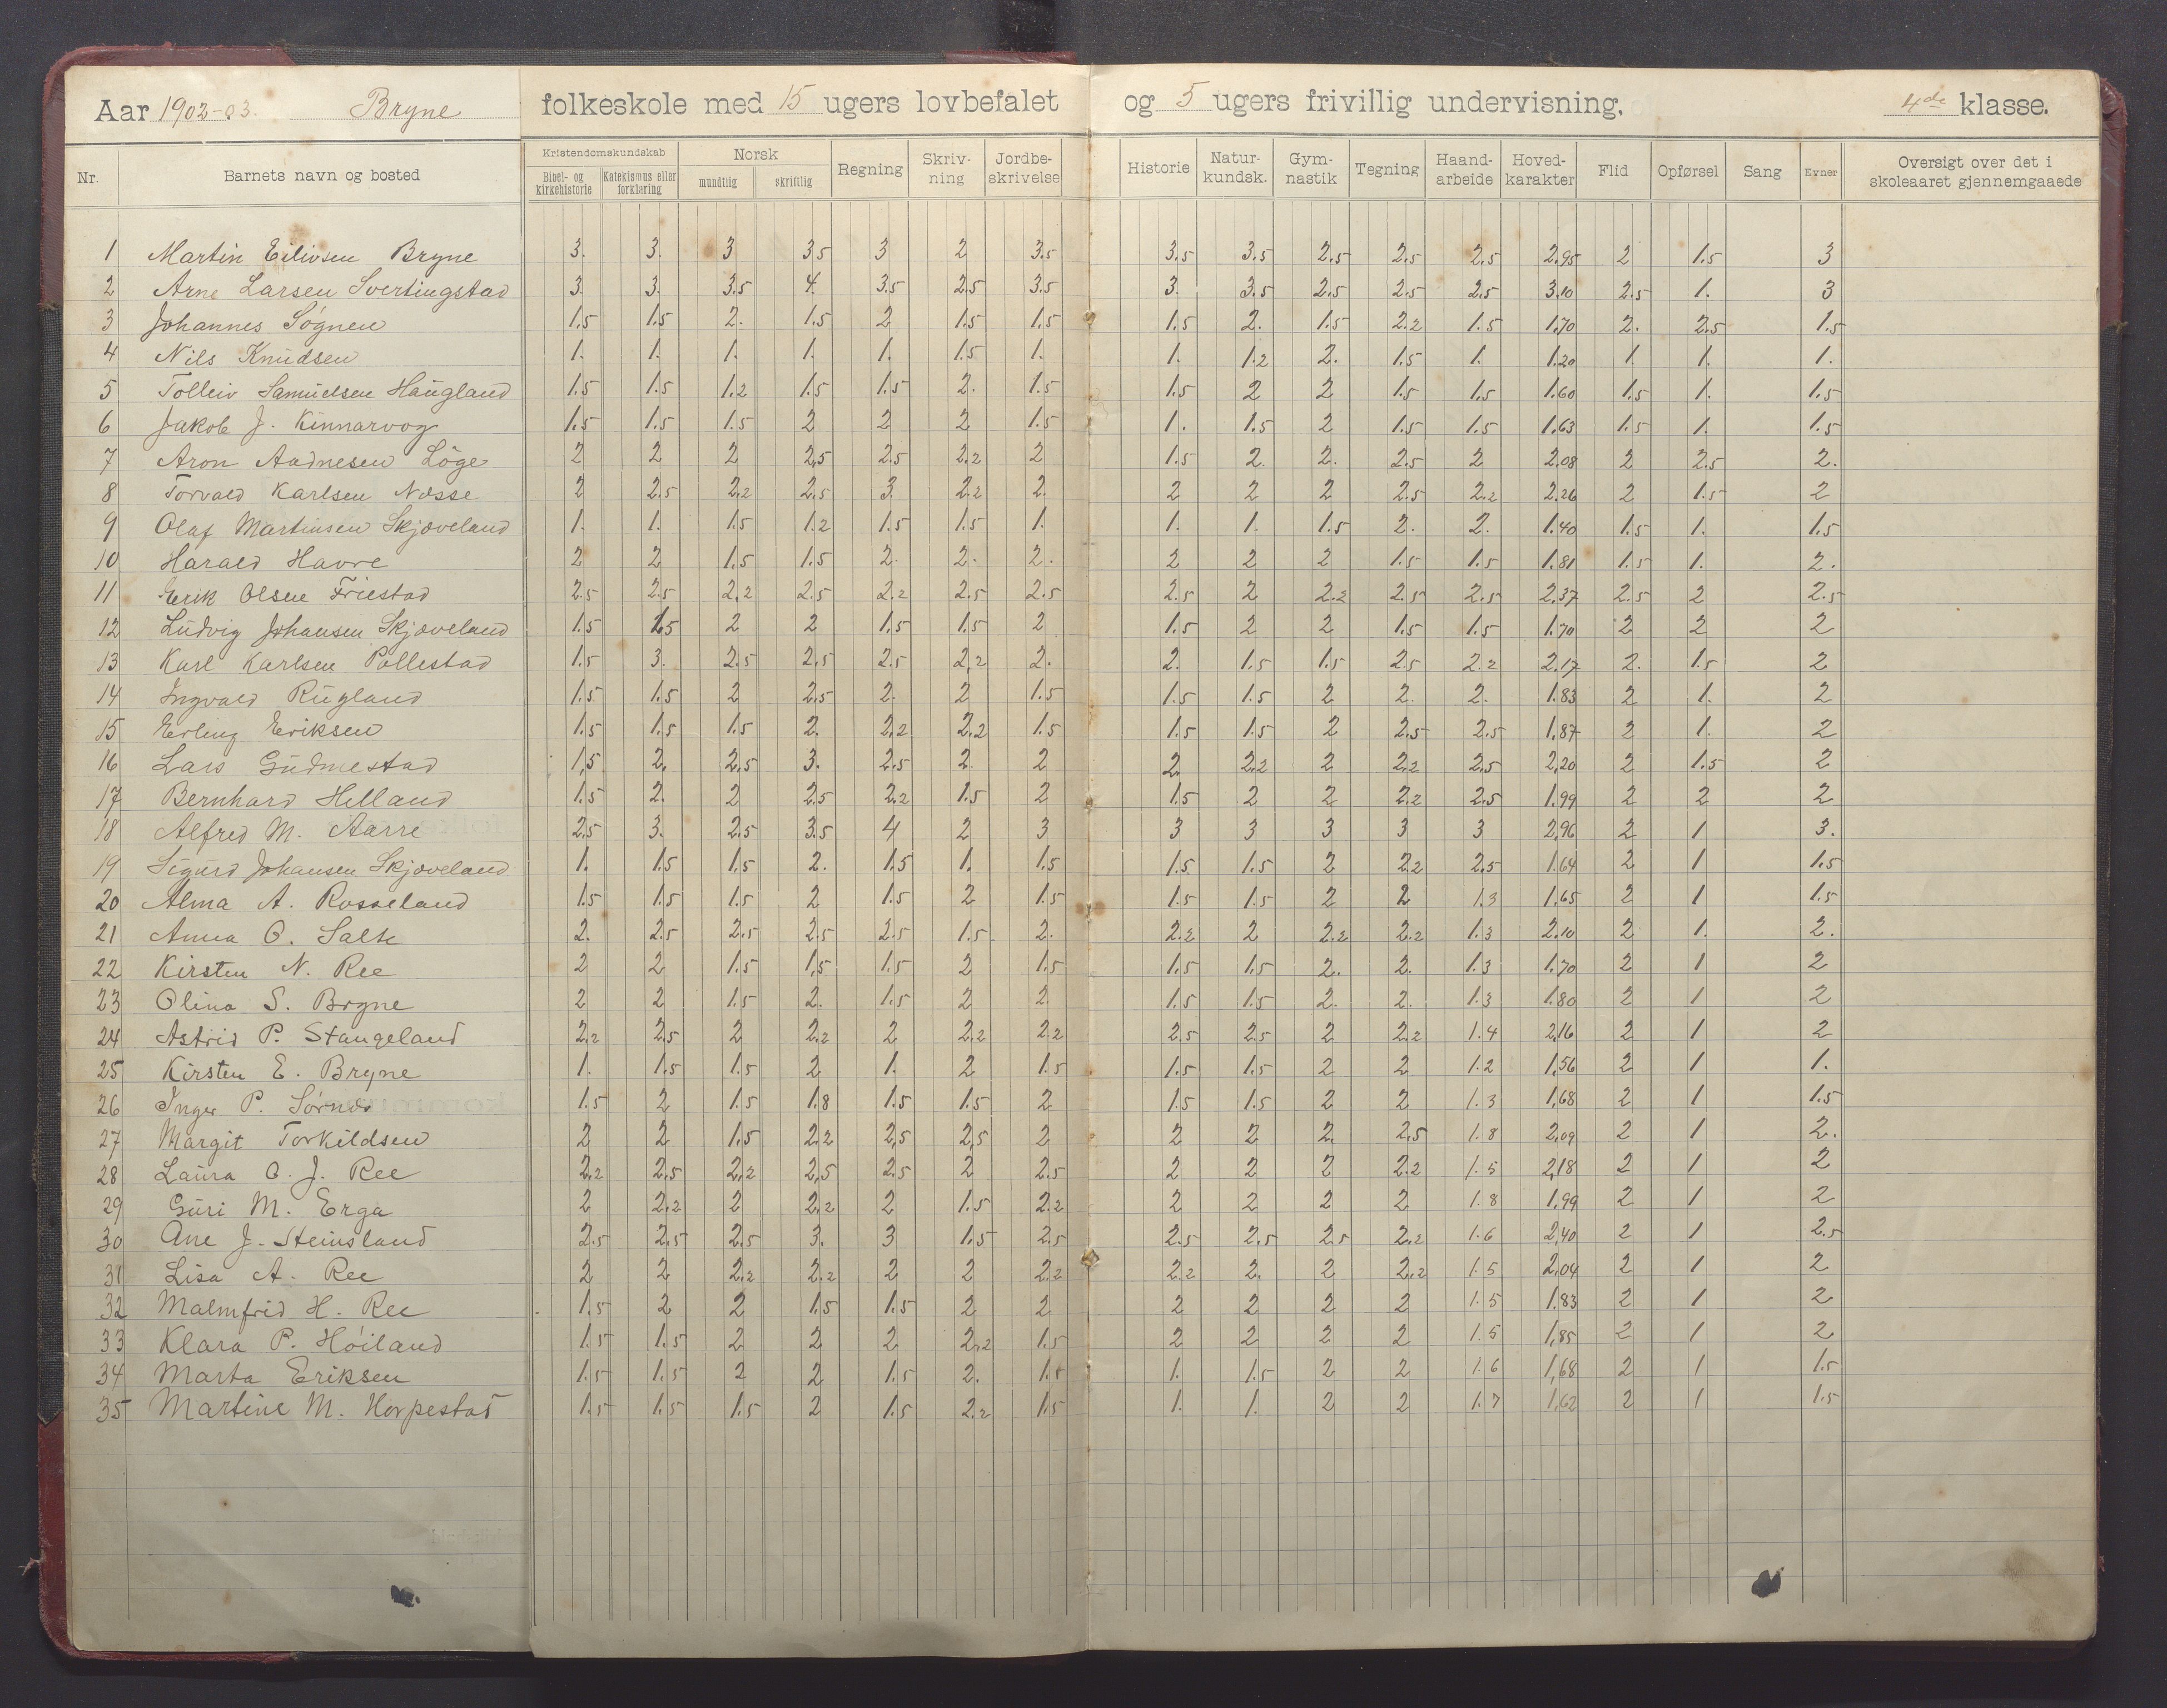 Aar 1902-03. Bryne folkeskole med 15 ugers lovbefalet og 5 ugers frivillig undervisning. 4de klasse.
Nr. Barnets navn og bosted Kristendomskundskab Bibel- og kirkehistorie Katekismus eller forklaring Norsk mundtlig skriftlig Regning Skriv-ning Jordbe-skrivelse Historie Natur-kundsk. Gym-nastik Tegning Haand-arbeide Hoved-karakter Flid Opførsel Sang Evner Oversigt over det i skoleaaret gjennemgaaede
1 Martin Eilivsen Bryne 3. 3. 3 3.5 3 2 3.5 3.5 3.5 2.5 2.5 2.5 2.95 2 1.5 3
2 Arne Larsen Svertingstad 3. 3. 3.5 4. 3.5 2.5 3.5 3. 3.5 2.5 2.5 2.5 3.10 2.5 1. 3
3 Johannes Søgnen 1.5 1.5 2. 1.5 2 1.5 1.5 1.5 2. 1.5 2.2 1.5 1.70 2. 2.5 1.5
4 Nils Knudsen 1. 1. 1. 1. 1. 1.5 1. 1. 1.2 2. 1.5 1. 1.20 1. 1. 1.
5 Tolleiv Samuelsen Haugland 1.5 1.5 1.2 1.5 1.5 2. 1.5 1.5 2 2 1.5 1.5 1.60 1.5 1. 1.5
6 Jakob J. Kinnarvog 1.5 1.5 1.5 2 2 2 1.5 1. 1.5 2 1.5 1.5 1.63 1.5 1. 1.5
7 Aron Aadnesen Løge 2 2 2 2.5 2.5 2.2 2 1.5 2. 2. 2.5 2 2.08 2 2.5 2.
8 Torvald Karlsen Næsse 2 2.5 2.2 2.5 3. 2.2 2. 2 2 2 2.5 2.2 2.26 2 1.5 2
9 Olaf Martinsen Skjæveland 1. 1. 1.5 1.2 1.5 1.5 1. 1. 1. 1.5 2. 2. 1.40 1.5 1. 1.5
10 Harald Havre 2 2 1.5 1.5 2. 2. 2. 2 2 2 1.5 1.5 1.81 1.5 1. 2.
11 Erik Olsen Friestad 2.5 2.5 2.2 2.5 2.2 2.5 2.5 2.5 2 2.2 2.5 2.5 2.37 2.5 2 2.5
12 Ludvig Johansen Skjæveland 1.5 1.5 2 2 1.5 1.5 2 1.5 2 2 1.5 1.5 1.70 2 2 2
13 Karl Karlsen Pollestad 1.5 3. 2.5 2.5 2.5 2.2 2. 2. 1.5 1.5 2.5 2.2 2.17 2. 1.5 2
14 Ingvald Rugland 1.5 1.5 2 2.5 2. 2 1.5 1.5 1.5 2 2. 2. 1.83 2 1. 2
15 Erling Eriksen 1.5 1.5 1.5 2. 2.2 2.2 1.5 1.5 1.5 2 2.5 2.5 1.87 2 1. 2
16 Lars Gudmestad 1.5 2. 2.5 3. 2.5 2. 2 2. 2.2 2 2.2 2.5 2.20 2 1.5 2
17 Bernhard Helland 1.5 2. 2 2.5 2.2 1.5 2 1.5 2 2 2.2 2.5 1.99 2 2 2
18 Alfred M. Aarre 2.5 3. 2.5 3.5 4 2 3 3 3 3 3 3 2.96 2 1 3.
19 Sigurd Johansen Skjæveland 1. 1.5 1.5 2. 1.5 1. 1.5 1.5 1.5 2 2.2 2.5 1.64 2 1 1.5
20 Alma A. Rosseland 1.5 1.5 1.5 2 1.5 2 1.5 1.5 1.5 2 2 1.3 1.65 2 1 1.5
21 Anna O. Salte 2. 2.5 2.5 2.5 2.5 1.5 2. 2.2 2 2.2 2.2 1.3 2.10 2 1. 2.
22 Kirsten N. Ree 2 2 1.5 1.5 1.5 2 1.5 1.5 1.5 2. 2. 1.3 1.70 2 1 2
23 Olina S. Bryne 2 2 1.5 2. 1.5 2 2. 1.5 1.5 2. 2. 1.3 1.80 2 1 2
24 Astrid P. Stangeland 2.2 2.5 2 2.2 2 2.2 2.2 2.5 2.5 2 2.2 1.4 2.16 2 1 2
25 Kirsten E. Bryne 1. 1.5 1.5 2 1. 2 1.5 1.5 1.5 2 2 1.2 1.56 2 1 1.
26 Inger P. Sørnæs 1.5 2 1.5 1.8 1.5 1.5 2 1.5 1.5 2 2 1.3 1.68 2 1 1.5
27 Margit Torkildsen 2 2 1.5 2.2 2.5 2.5 2 2 2 2. 2.5 1.8 2.09 2 1 2.
28 Laura O. J. Ree 2.2 2.5 2.2 2.5 2.5 2 2.5 2 2 2 2.2 1.5 2.18 2 1 2
29 Guri M. Erga 2 2.2 2 2.2 2 1.5 2.2 2 2 2 2 1.8 1.99 2 1 2
30 Ane J. Steinsland 2.5 2.5 2.5 3. 3 1.5 2.5 2.5 2.5 2.5 2.2 1.6 2.40 2 1 2.5
31 Lisa A. Ree 2 2 2.2 2.2 2 2 2.2 2.2 2. 2 2.2 1.5 2.04 2 1 2
32 Malmfrid H. Ree 1.5 2 2 1.5 1.5 2 2 2 2 2 2 1.5 1.83 2 1 2
33 Klara P. Høiland 1.5 1.5 2 2 2 2.2 1.5 2 2 2 2 1.5 1.85 2 1 2
34 Marta Eriksen 1.5 1.5 2 2 1.5 2. 1.5 1. 1.5 2 2 1.6 1.68 2 1 1.5
35 Martine M. Horpestad 1.5 1.5 1.5 2 1.5 2.2 1.5 1. 1. 2 2 1.7 1.62 2 1 1.5